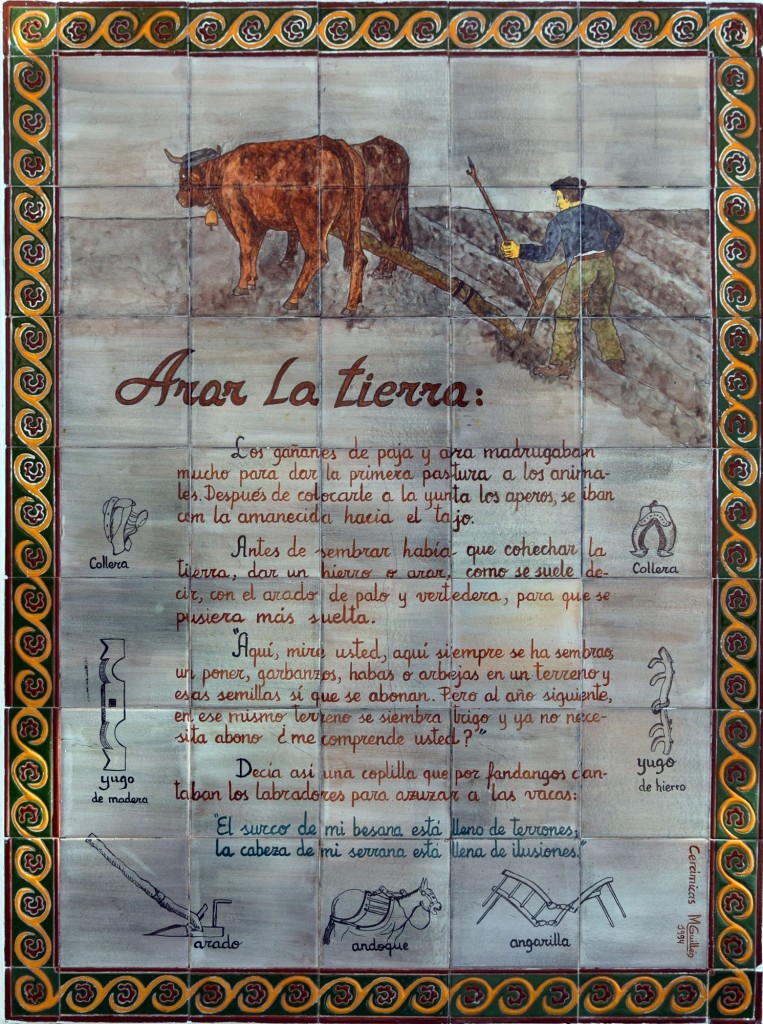 Arar La tierra:
Los gañanes de paja y ara madrugaban
mucho para dar la primera pastura a los anima-
les. Después de colocarle a la yunta los aperos, se iban
con la amanecida hacia el tajo.
Antes de sembrar había que cohechar la
tierra, dar un hierro o arar, como se suele de-
cir, con el arado de palo y vertedera, para que se
pusiera más suelta.
"Aquí, mire usted, aquí siempre se ha sembrao,
un poner, garbanzos, habas o arbejas en un terreno y
esas semillas sí que se abonan. Pero al año siguiente,
en ese mismo terreno se siembra trigo y ya no nece-
sita abono ¿me comprende usted?"
Decía así una coplilla que por fandangos can-
taban los labradores para azuzar a las vacas:
"El surco de mi besana está lleno de terrones;
la cabeza de mi serrana está llena de ilusiones."
Collera
Collera
yugo
de madera
yugo
de hierro
arado
andoque
angarilla
Cerámicas MGuillén
1994